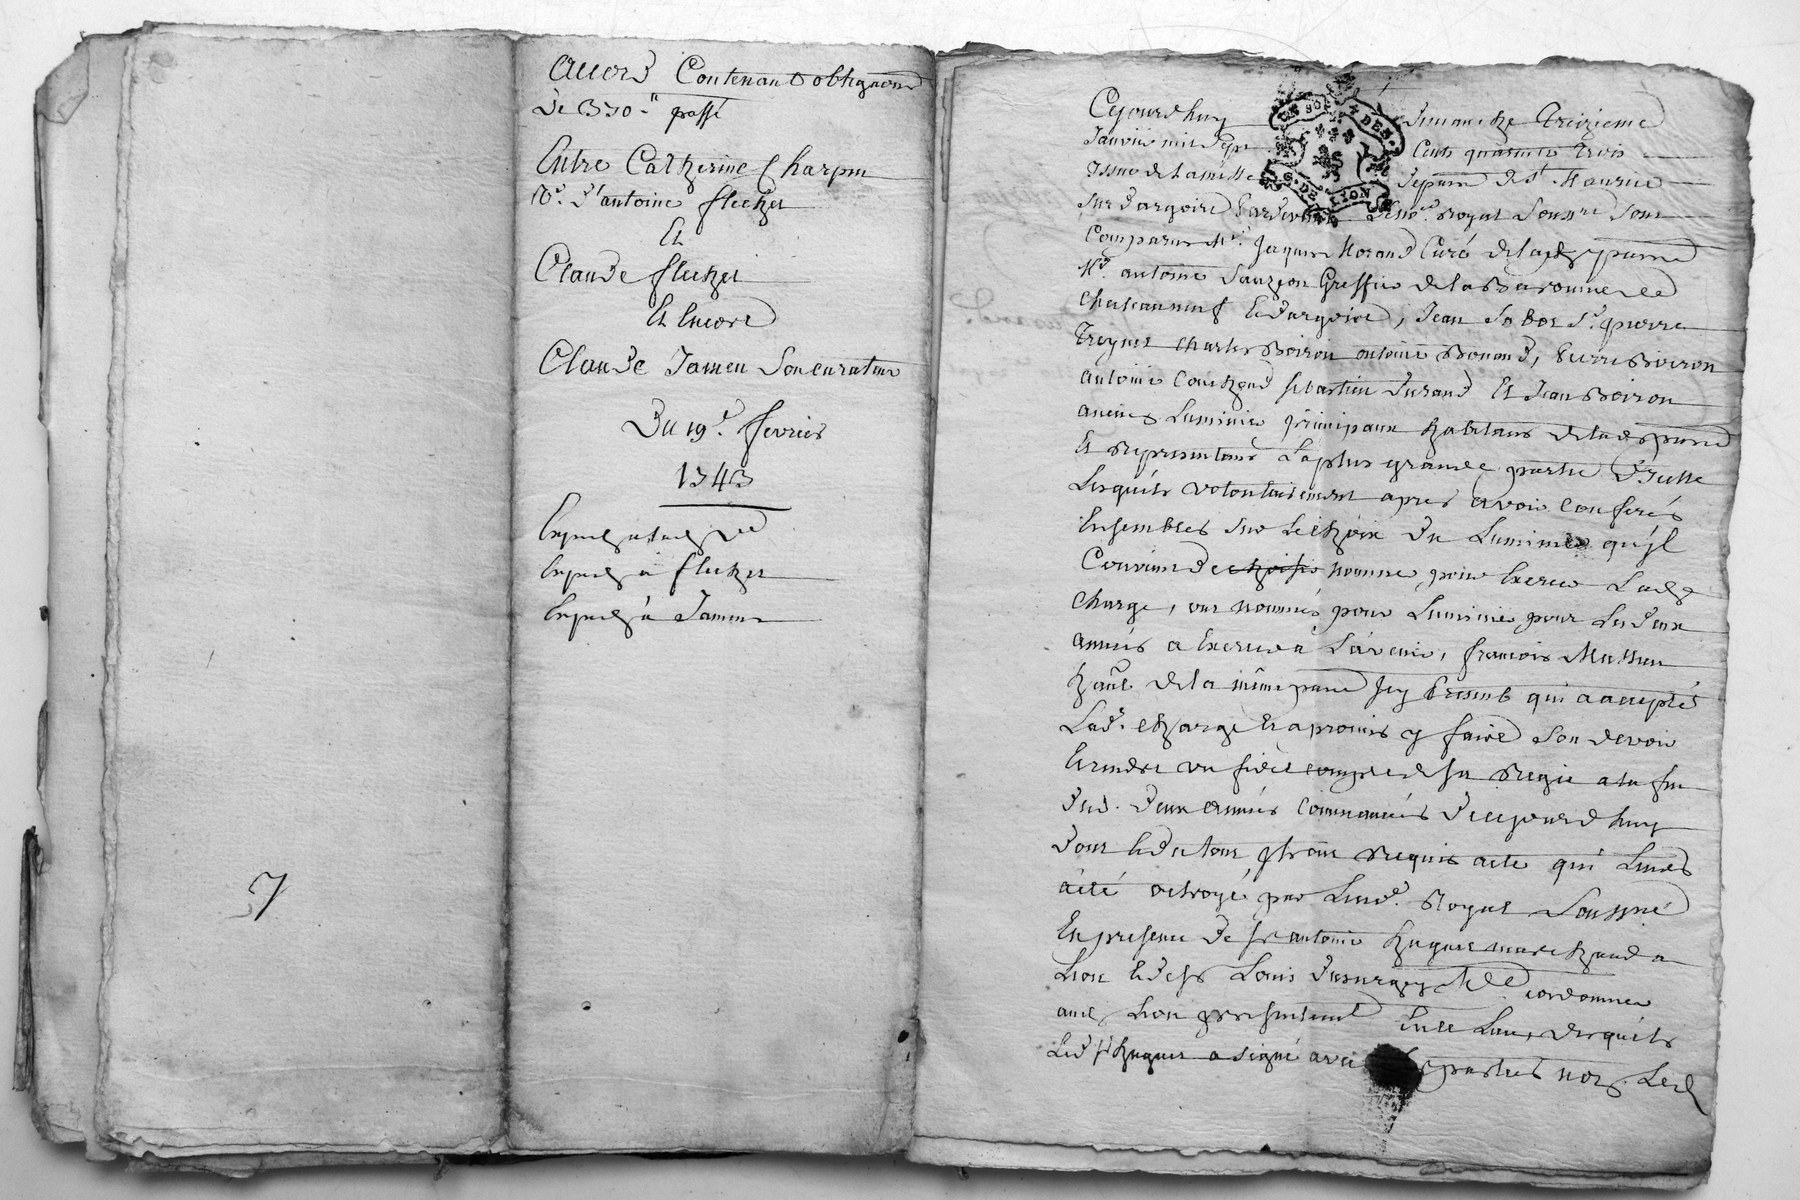 Accord Contenant obligaōn
De 370# passé
Entre Catherine Charpin
Ve. d'antoine flechet
Et
Claude flechet
Et Encore
Claude Jameu Son curateur
Du 19e. fevrier
1743
Exped à flechet
Exped à Jameu
7
Cejourdhuy dimanche treizieme
Janvier mil sept Cent quarante trois
Issue de la messe de par̄e de St. Maurice
sur dargoire Pardevant Leno.re royal Soussné Sont
Comparus Mre. Jacques Morand Curé de lad. par̄e
Me. antoine Sauzeon Greffier de la Baronnie de
Chateauneuf & dargoire, Jean pierre
charles Boiron antoine Bonnand, Pierre Boiron
antoine Couchoud sebastien Durand Et Jean Boiron
anciens Luminier principaux habitans de lad. par̄e
Et representant La plus grande partie D'Icelle
Lesquels volontairement apres avoir conferés
Ensembles sur Le choix du Luminier qu'jl
Convient de choisir nommer pour Exercer Lad.
charge, ont nommés pour Luminier pour Les deux
années a Exercer à L'avenir, francois Mathieu
hānt de la même par̄e Jcy Present qui a accepté
Lad. charge Et a promis y faire Son devoir
Et rendre un fidel compte de sa Regie a la fin
desd. deux années Commancées d'cejourdhuy
dont Et du tout jls ont Requis acte qui Leur
à été octroyé par Led. no.re Royal Soussné
En presence de sr. antoine hugues marchand a
Lion Et de sr Louis Me cordonnier
aud. Lion present Lieu, desquels
Led. sr hugues a signé avec Les parties non Led